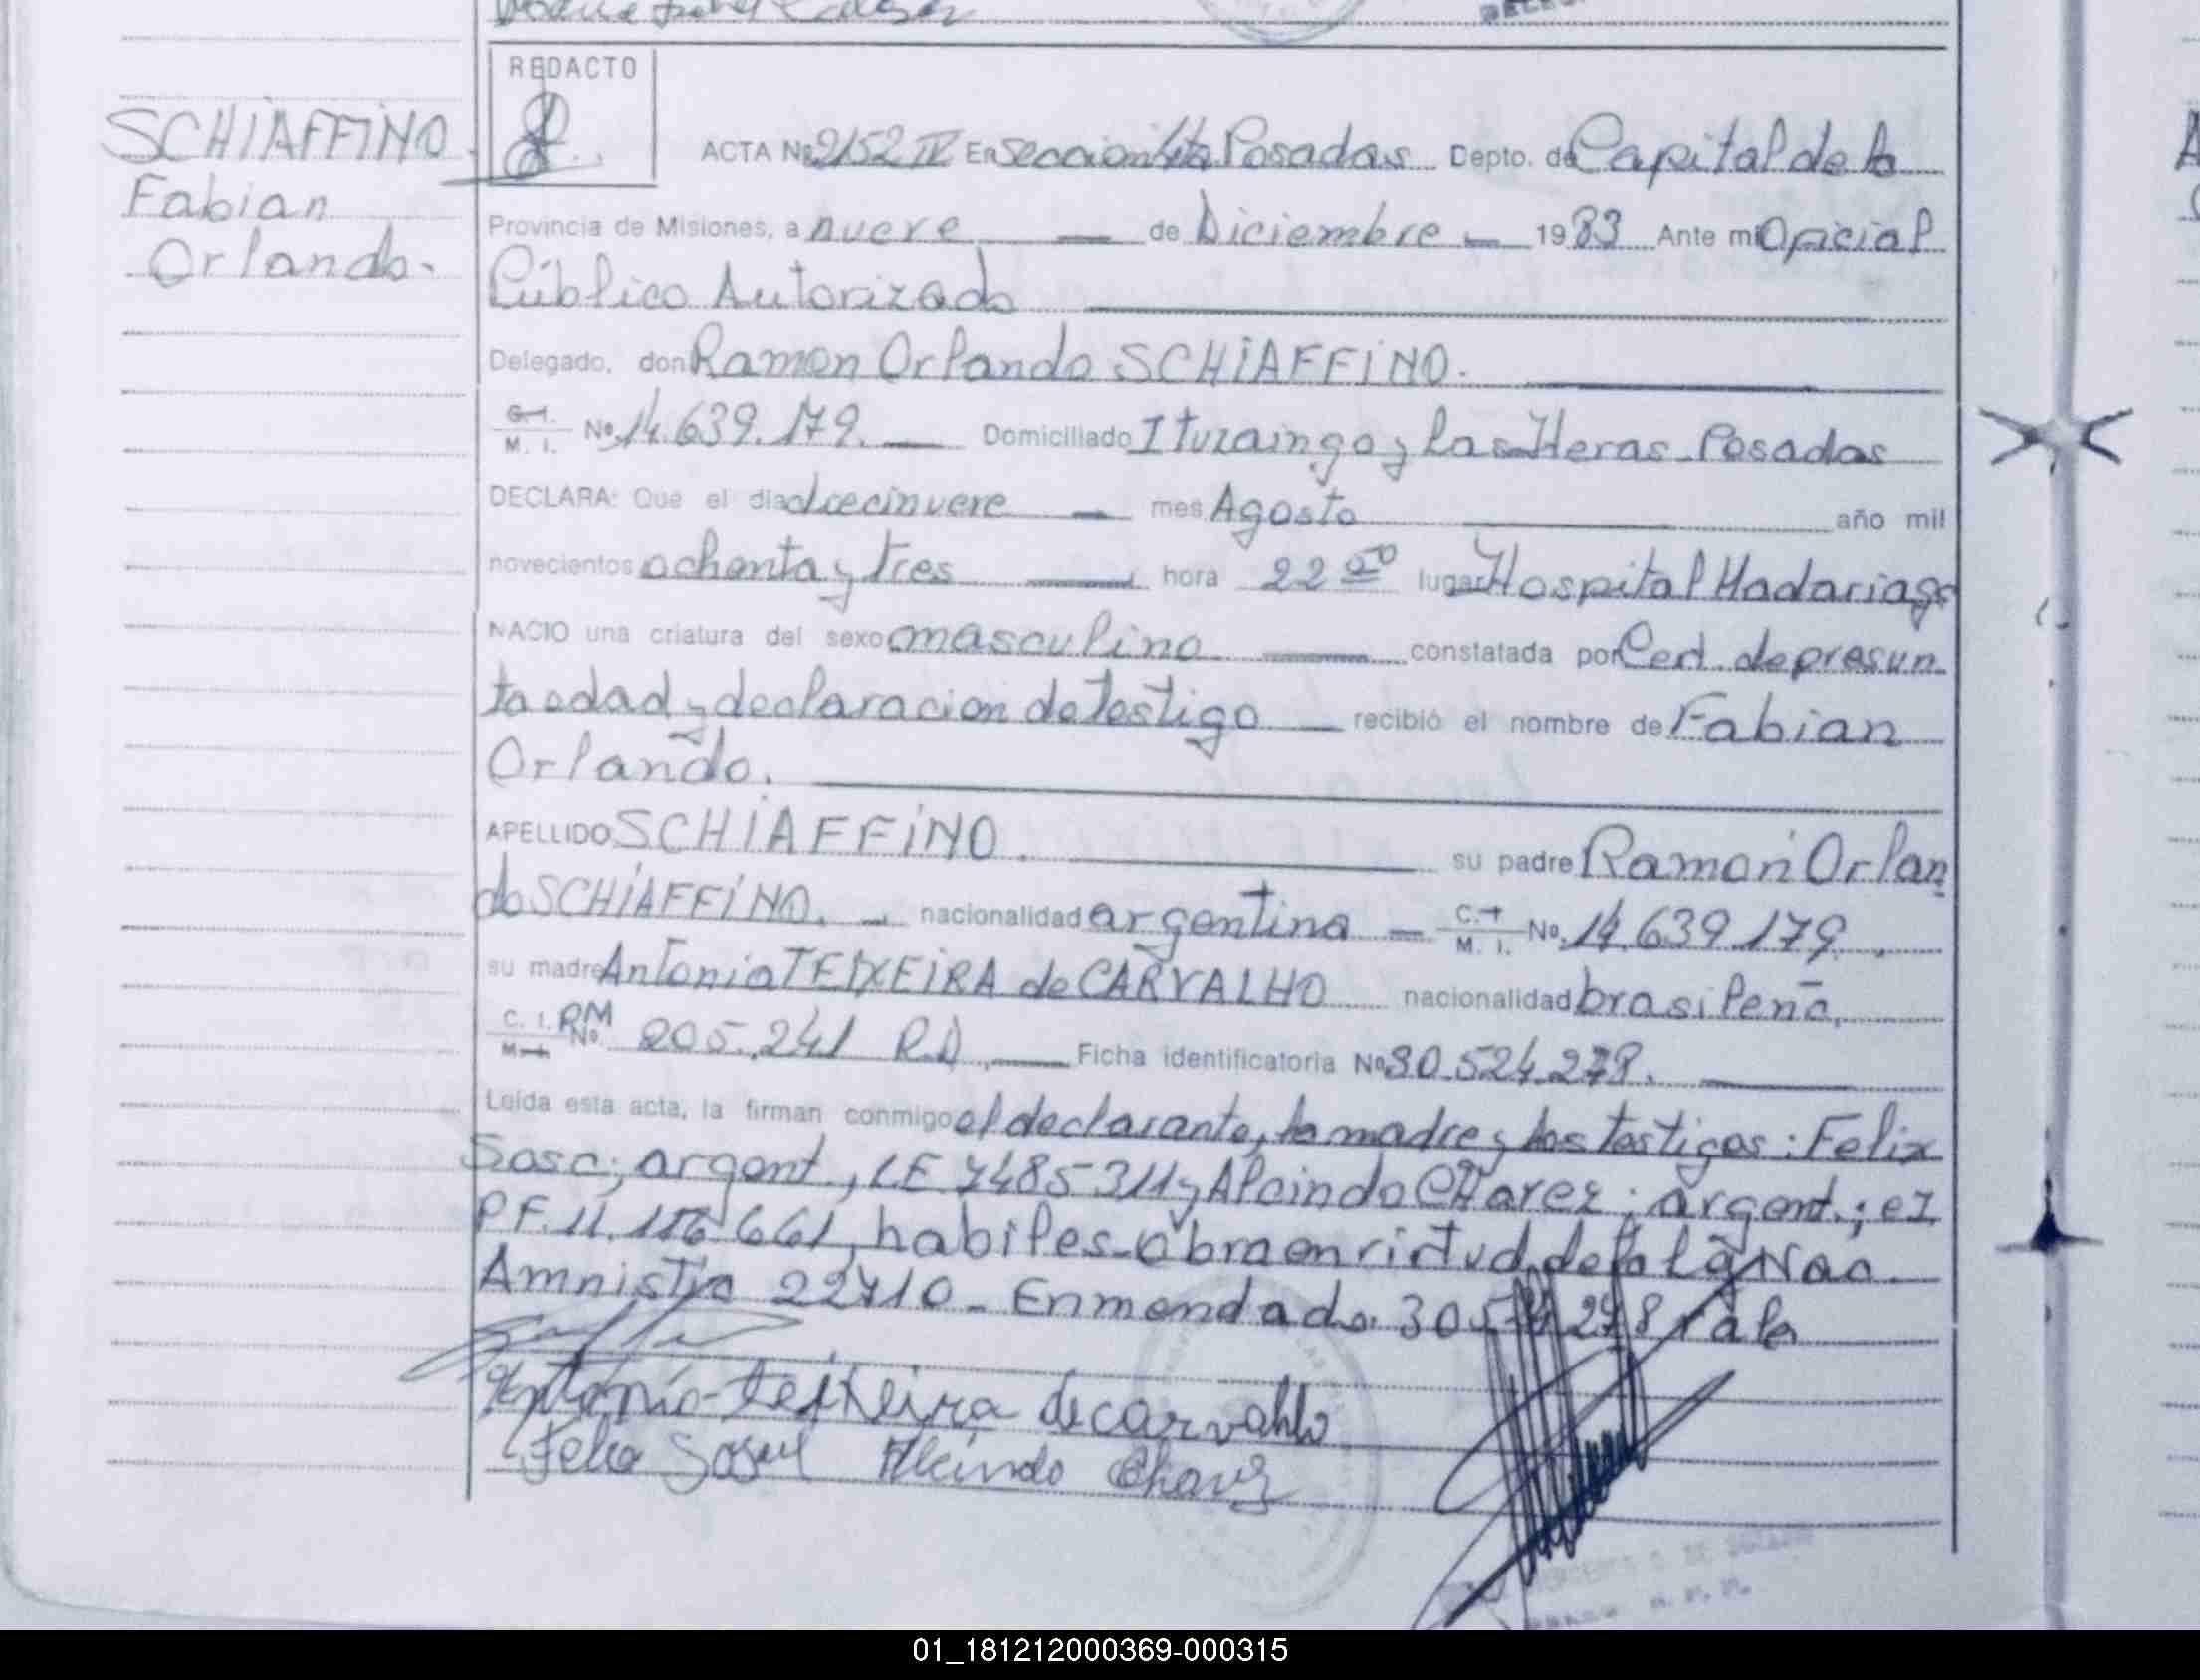 REDACTO
SCHIAFFINO
Fabian
Orlando.
ACTA Nº 2152 IV En sección 4ta Posadas Depto. de Capital de la
Provincia de Misiones, a nueve — de Diciembre — 1983 Ante mi Oficial
Público Autorizado
Delegado, don Ramon Orlando SCHIAFFINO.
C. I. M. I. Nº 14.639.179. — Domiciliado Ituzaingo y Las Heras - Posadas
DECLARA: Que el día diecinueve — mes Agosto — año mil
novecientos ochenta y tres — hora 22 00 lugar Hospital Madariaga
NACIO una criatura del sexo masculino — constatada por Cert. de presun
ta edad y declaracion de testigo — recibió el nombre de Fabian
Orlando.
APELLIDO SCHIAFFINO. — su padre Ramon Orlan
do SCHIAFFINO. — nacionalidad argentina — C. I. M. I. Nº 14.639.179.
su madre Antonia TEIXEIRA de CARVALHO nacionalidad brasileña,
C. I. M. I. RM Nº 205.241 R.D. — Ficha identificatoria Nº 30.524.278.
Leída esta acta, la firman conmigo el declarante, la madre y los testigos: Felix
Sosa; argent., LE 7485311 y Alcindo Chavez; argent.; CI
PF. 11.116.661, habiles - Obra en virtud de la Ley Nac.
Amnistia 22710 - Enmendado: 30524278 vale
Antonia Teixeira de carvahlo
Felix Sosa Alcindo Chavez
01_181212000369-000315